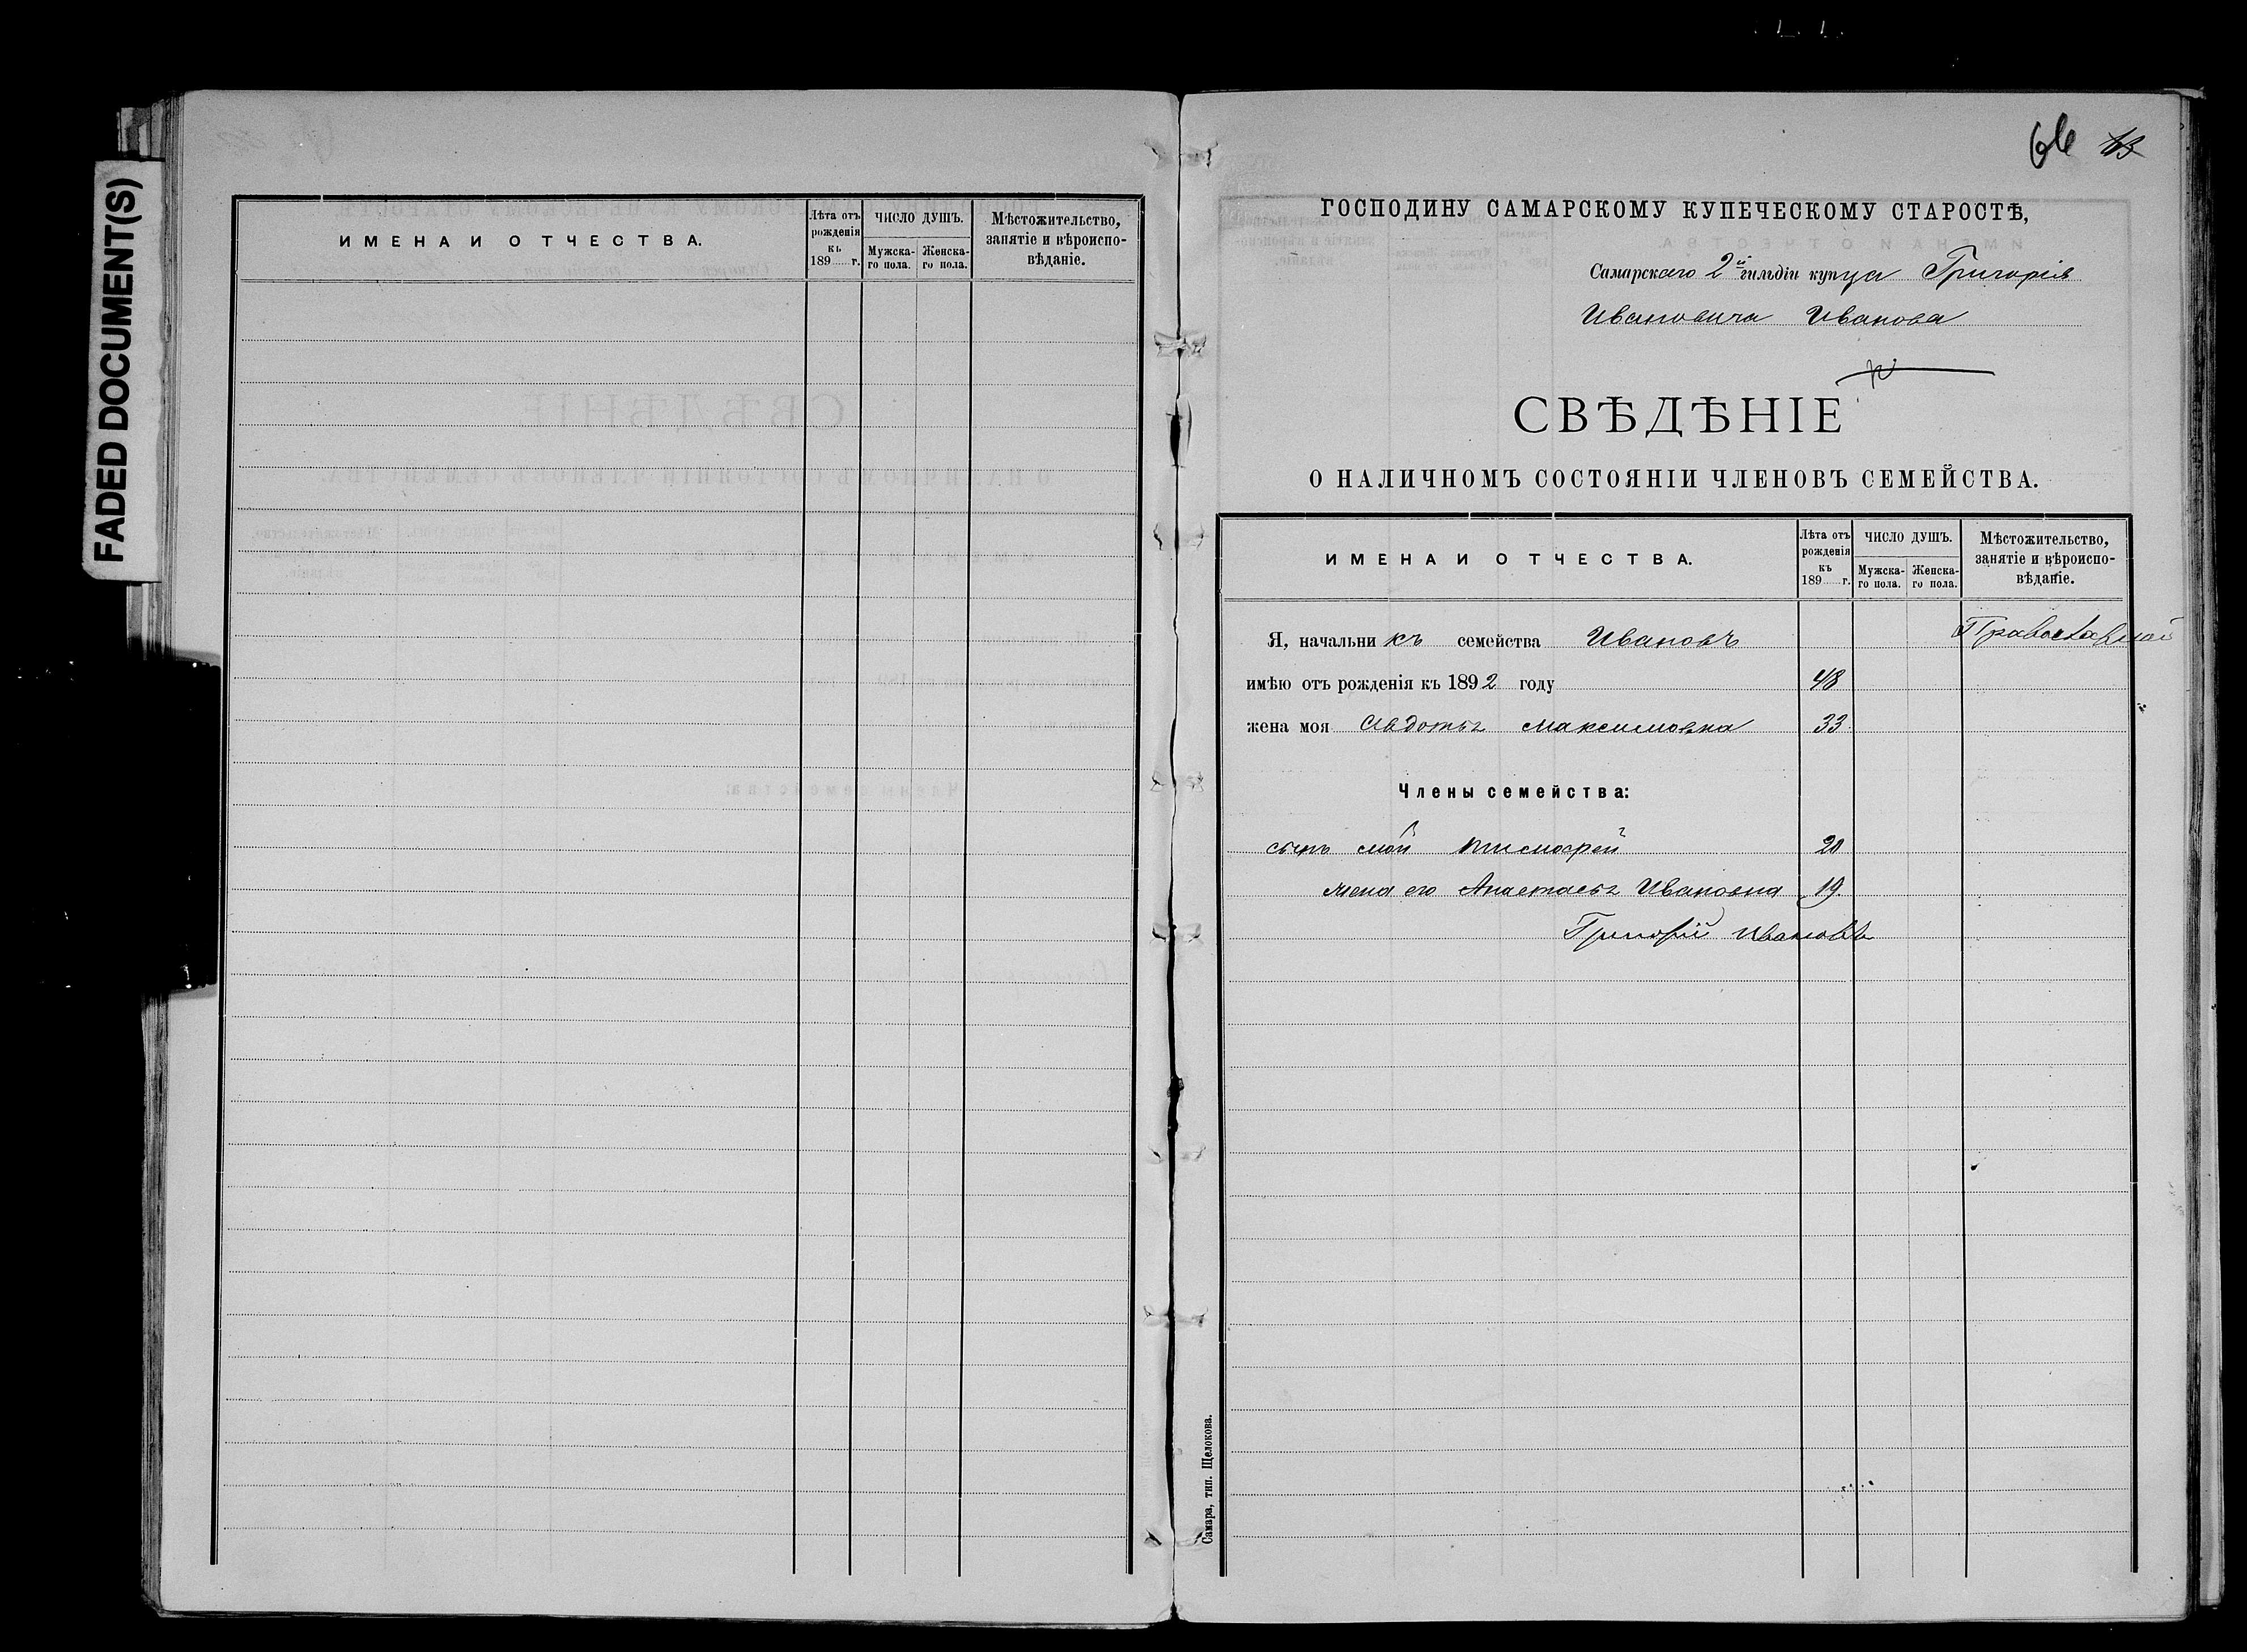 FADED DOCUMENT(S)
ИМЕНА И ОТЧЕСТВА.
Лѣта отъ рожденія къ 189 г.
ЧИСЛО ДУШЪ.
Мужска-го пола.
Женска-го пола.
Мѣстожительство, занятіе и вѣроиспо-вѣданіе.
66 63
ГОСПОДИНУ САМАРСКОМУ КУПЕЧЕСКОМУ СТАРОСТѢ,
Самарскаго 2й гильдіи купца Григорія
Ивановича Иванова
СВѢДѢНІЕ
О НАЛИЧНОМЪ СОСТОЯНІИ ЧЛЕНОВЪ СЕМЕЙСТВА.
ИМЕНА И ОТЧЕСТВА.
Лѣта отъ рожденія къ 189 г.
ЧИСЛО ДУШЪ.
Мужска-го пола.
Женска-го пола.
Мѣстожительство, занятіе и вѣроиспо-вѣданіе.
Я, начальникъ семейства Ивановъ Православной
имѣю отъ рожденія къ 1892 году 48
жена моя Авдотья Максимовна 33
Члены семейства:
сынъ мой Тимофей 20
жена его Анастасья Ивановна 19
Григорій Ивановъ
Самара, тип. Щелокова.